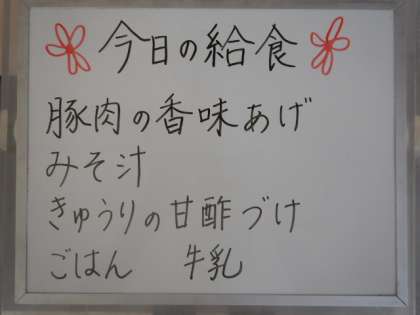 今日の給食
豚肉の香味あげ
みそ汁
きゅうりの甘酢づけ
ごはん 牛乳